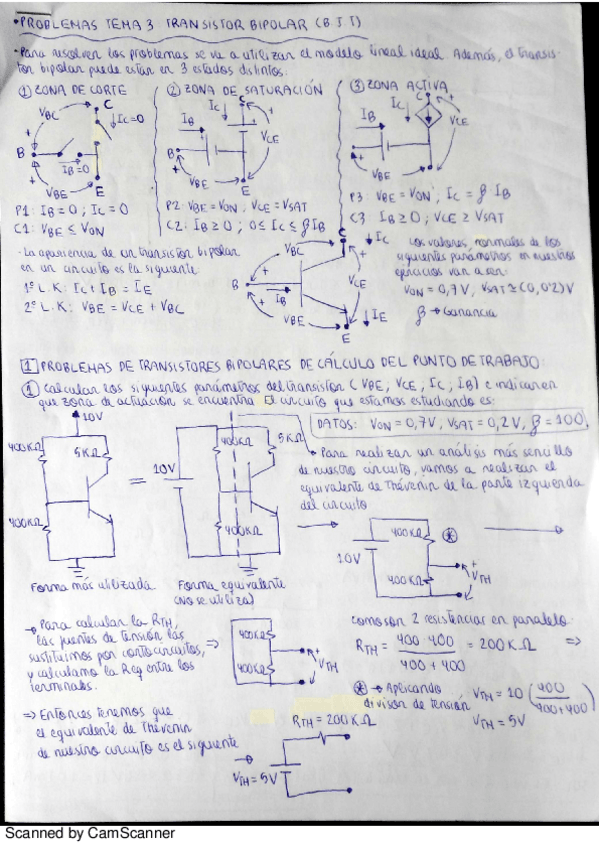 • PROBLEMAS TEMA 3 TRANSISTOR BIPOLAR (B.J.T)
- Para resolver los problemas se va a utilizar el modelo lineal ideal. Además, el transis-
tor bipolar puede estar en 3 estados distintos:
① ZONA DE CORTE
VBC
C
Ic=0
B
IB=0
VBE
E
P1: IB = 0 ; Ic = 0
C1: VBE ≤ VON
② ZONA DE SATURACIÓN
IB
Ic
C
VCE
B
VBE
E
P2: VBE = VON ; VCE = VSAT
C2: IB ≥ 0 ; 0 ≤ Ic ≤ βIB
③ ZONA ACTIVA
IB
Ic
C
VCE
B
VBE
E
P3: VBE = VON ; Ic = β IB
C3: IB ≥ 0 ; VCE ≥ VSAT
- La apariencia de un transistor bipolar
en un circuito es la siguiente
1º L.K: Ic + IB = IE
2º L.K: VBE = VCE + VBC
C
Ic
VBC
B
IB
VCE
VBE
IE
E
Los valores normales de los
siguientes parámetros en nuestros
ejercicios van a ser:
VON = 0,7V, VSAT ≃ (0, 0'2)V
β → Ganancia
1 PROBLEMAS DE TRANSISTORES BIPOLARES DE CÁLCULO DEL PUNTO DE TRABAJO:
① Calcular los siguientes parámetros del transistor (VBE, VCE, Ic, IB) e indicar en
que zona de actuación se encuentra. El circuito que estamos estudiando es:
DATOS: VON = 0,7V, VSAT = 0,2V, β = 100
10V
400KΩ
5KΩ
400KΩ
=
10V
400KΩ
5KΩ
400KΩ
Forma más utilizada
Forma equivalente
(No se utiliza)
• Para realizar un análisis más sencillo
de nuestro circuito, vamos a realizar el
equivalente de Thévenin de la parte izquierda
del circuito
10V
400KΩ
*
400KΩ
VTH
→ Para calcular la RTH,
las fuentes de tensión las
sustituimos por cortocircuitos, ⇒
y calculamo la Req entre los
terminales.
400KΩ
400KΩ
VTH
como son 2 resistencias en paralelo
RTH = 400·400 / 400+400 = 200KΩ ⇒
* → Aplicando
divisor de tensión
VTH = 10 (400 / 400+400)
VTH = 5V
⇒ Entonces tenemos que
el equivalente de Thévenin
de nuestro circuito es el siguiente
RTH = 200KΩ
VTH = 5V
Scanned by CamScanner